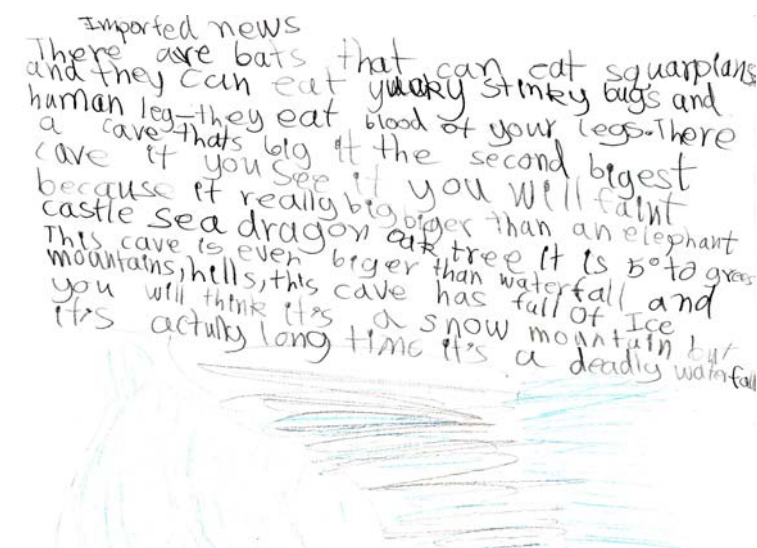 Imported news
There are bats that can eat squarpians
and they can eat yucky stinky bugs and
human leg-they eat blood of your legs.There
a cave thats big it the second bigest
cave if you see it you will faint
because it really big biger than an elephant
castle sea dragon oak tree it is 5° to grees
This cave is even biger than waterfall and
mountains,hills,this cave has full of Ice
you will think it's a snow mountain but
it's actully long time it's a deadly waterfall